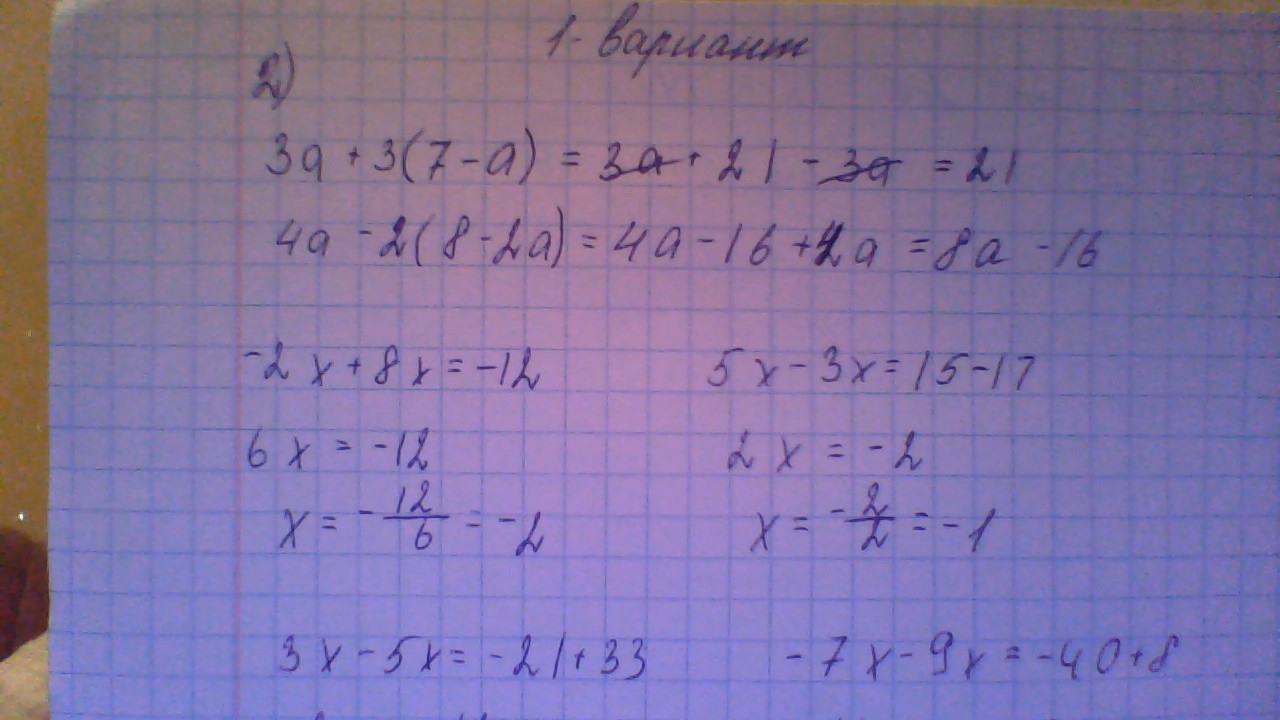 1-вариант
2)
3a + 3(7 - a) = 3a + 21 - 3a = 21
4a - 2(8 - 2a) = 4a - 16 + 4a = 8a - 16
-2x + 8x = -12    5x - 3x = 15 - 17
6x = -12    2x = -2
x = -12/6 = -2    x = -2/2 = -1
3x - 5x = -21 + 33    -7x - 9x = -40 + 8